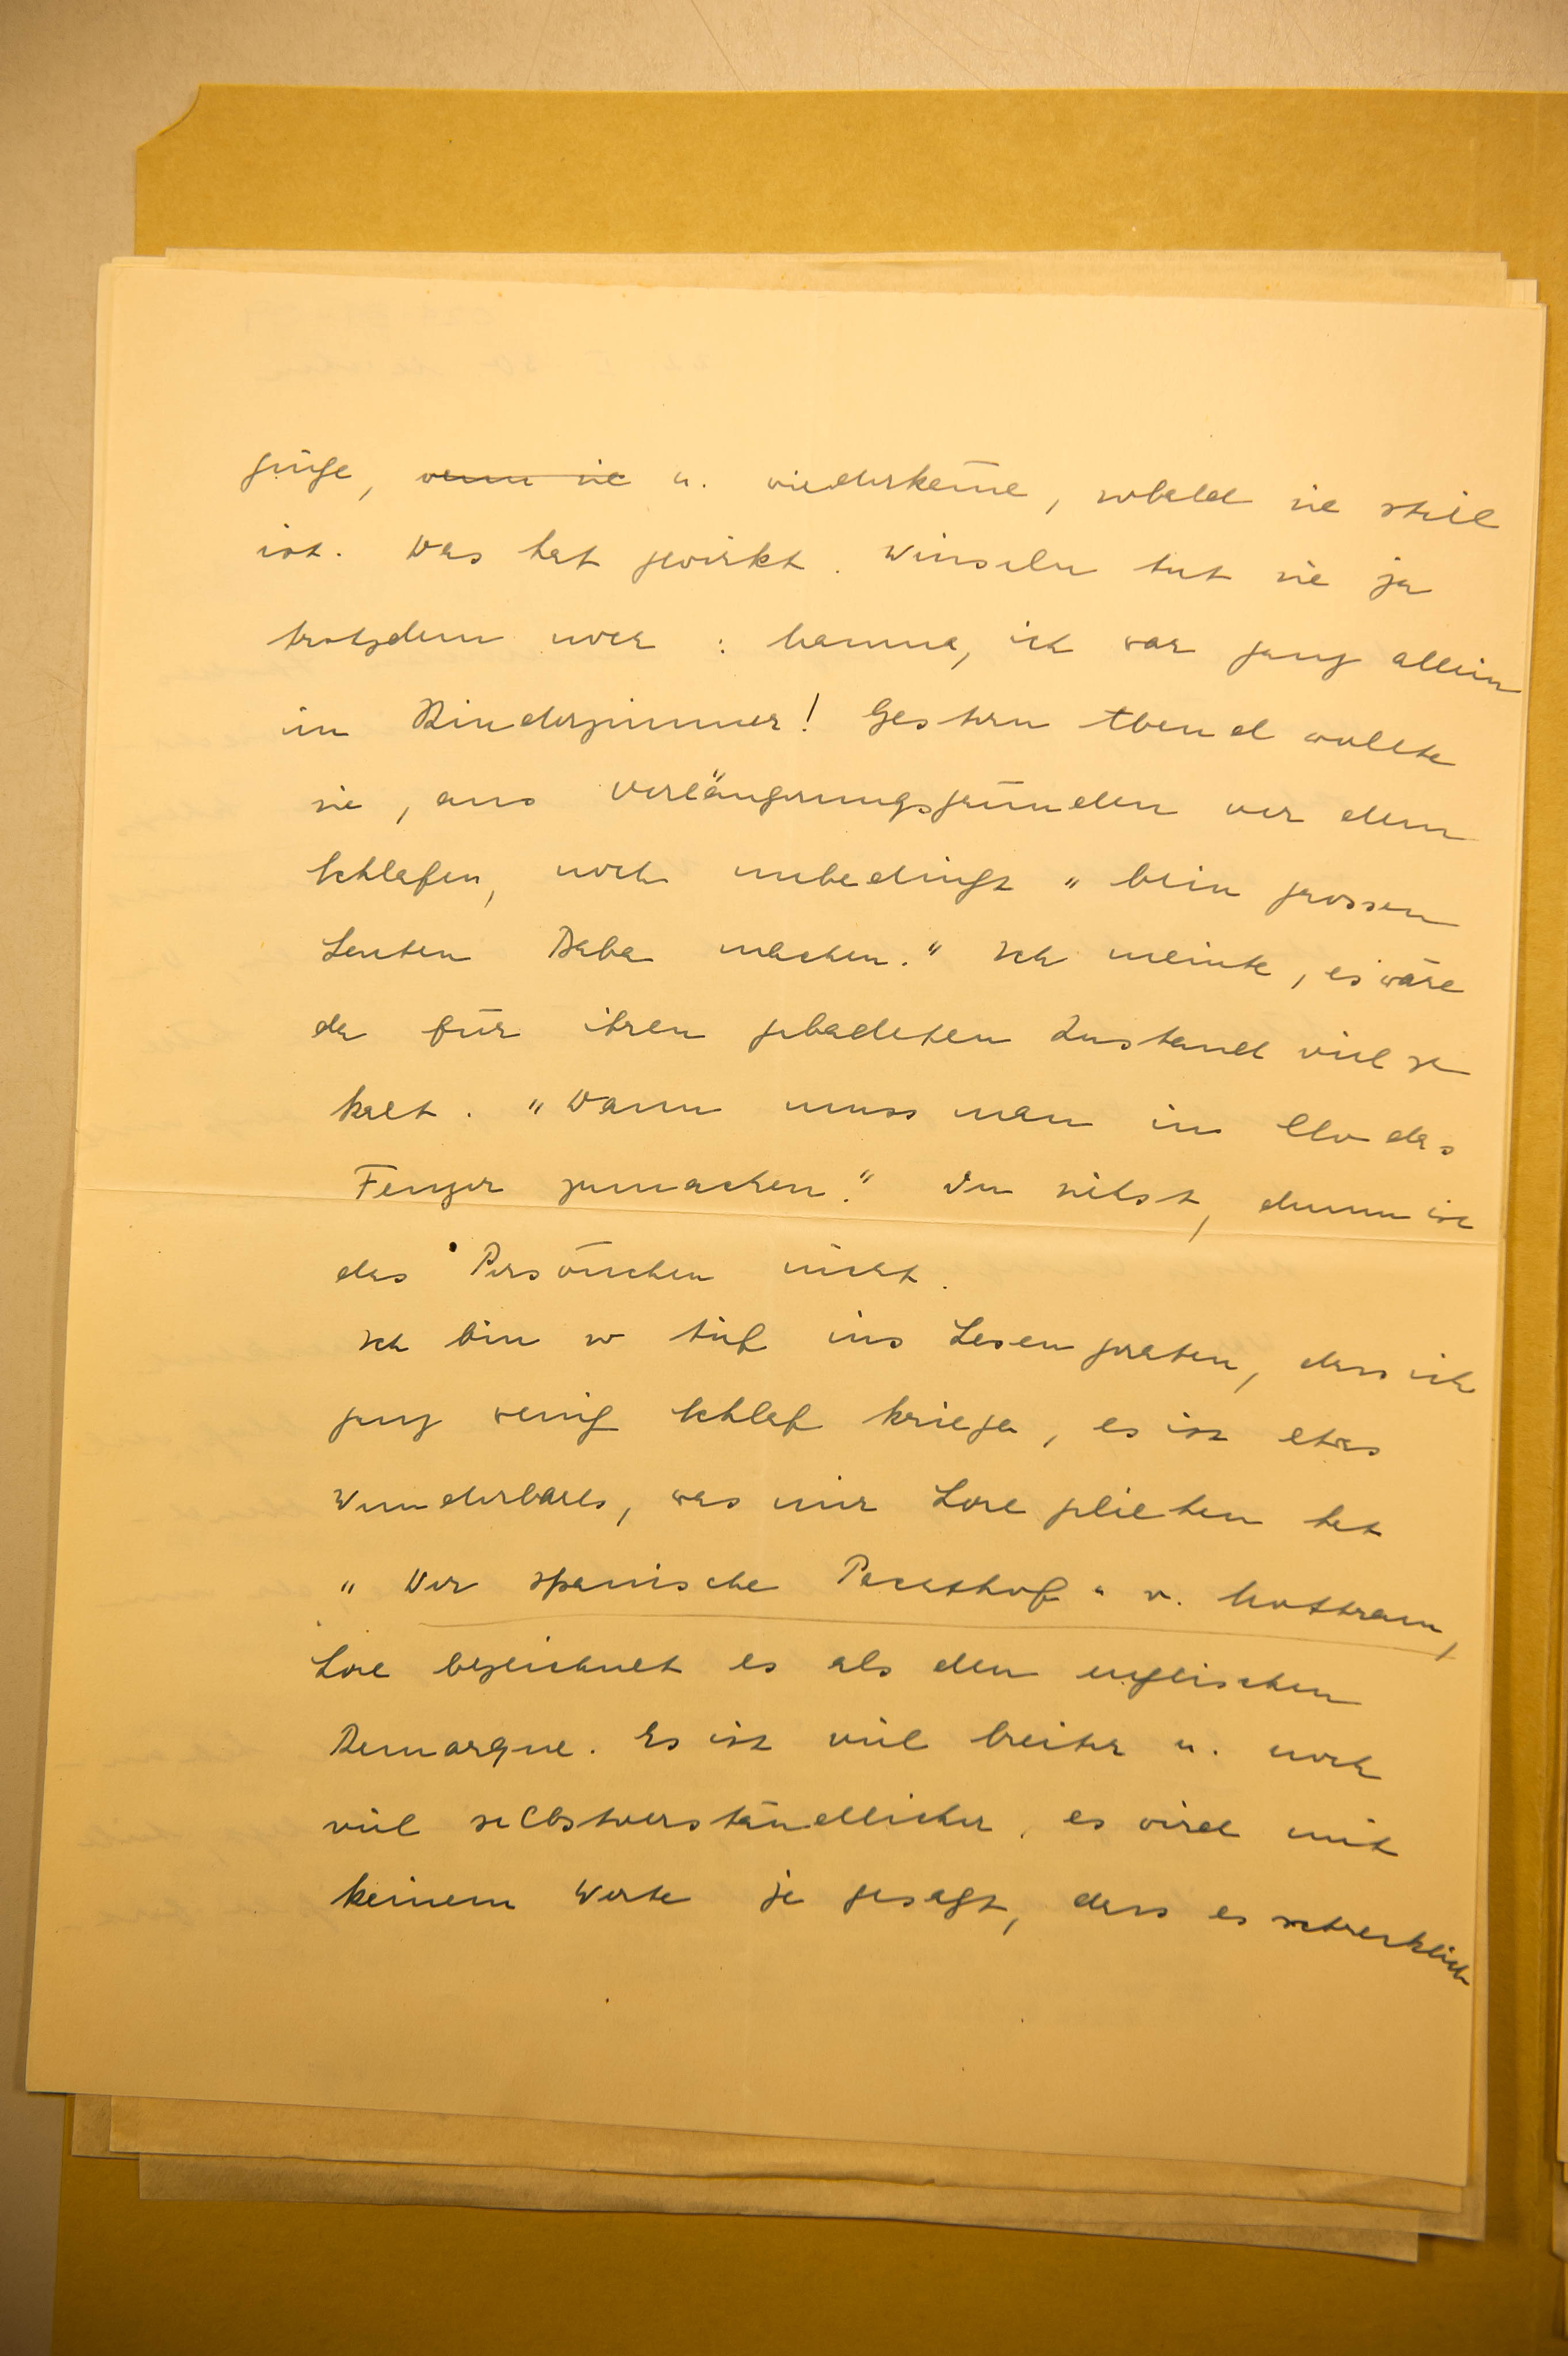 ginge, wenn sie u. wiederkäme, sobald sie still
ist. Das hat gewirkt. Winseln tut sie ja
trotzdem noch : Mamma, ich war ganz allein
im Kinderzimmer! Gestern Abend wollte
sie, aus Verlängerungsgründen vor dem
Schlafen, noch unbedingt "bein grossen
Leuten Baba machen." Ich meinte, es wäre
da für ihren gebadeten Zustand viel zu
kalt. "Dann muss man im Clo das
Fenzer zumachen." Du siehst, dumm ist
das Persönchen nicht.
Ich bin so tief ins Lesen geraten, dass ich
ganz wenig Schlaf kriege, es ist etwas
Wunderbares, was mir Lore geliehen hat
"Der spanische Pachthof" v. Mottram,
Lore bezeichnet es als den englischen
Remarque. Es ist viel breiter u. noch
viel selbstverständlicher, es wird mit
keinem Worte je gesagt, dass es schrecklich